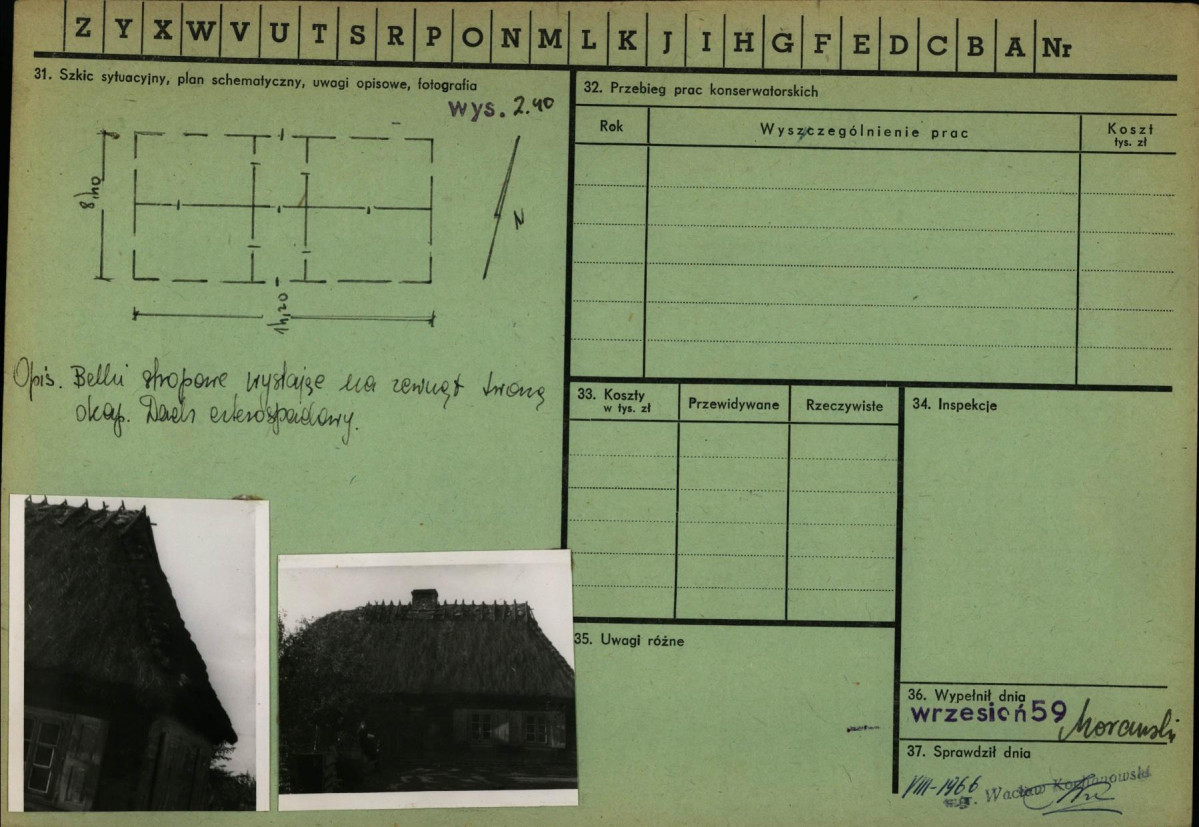 Z Y X W V U T S R P O N M L K J I H G F E D C B A Nr
31. Szkic sytuacyjny, plan schematyczny, uwagi opisowe, fotografia
wys. 2.40
8,40
N
14,20
Opis. Belki stropowe wystające na zewnąt tworzą
okap. Dach czterospadowy.
32. Przebieg prac konserwatorskich
Rok
Wyszczególnienie prac
Koszt
tys. zł
33. Koszty
w tys. zł
Przewidywane
Rzeczywiste
34. Inspekcje
35. Uwagi różne
36. Wypełnił dnia
wrzesień 59 Morawski
37. Sprawdził dnia
VIII-1966
mgr. Wacław Kochanowski